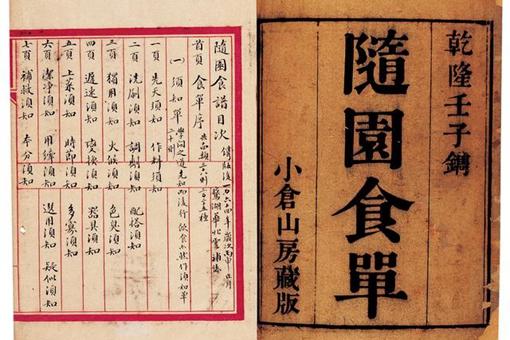 乾隆壬子鐫
隨園食單
小倉山房藏版
隨園食譜目次
首頁 食單序
(一) 須知單 學问之道先知而後行飲食亦然作須知單 二十則
一頁 先天須知 作料須知
二頁 洗刷須知 調劑須知 配搭須知
三頁 獨用須知 火候須知 色臭須知
四頁 遲速須知 变换須知 器具須知
五頁 上菜須知 時節須知 多寡須知
六頁 潔净須知 用縴須知 選用須知 疑似須知
七頁 補救須知 本分須知